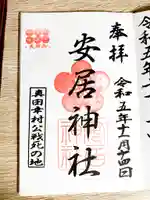 奉拝
令和五年十一月十四日
安居神社
真田幸村公戦死の地
令和五年十